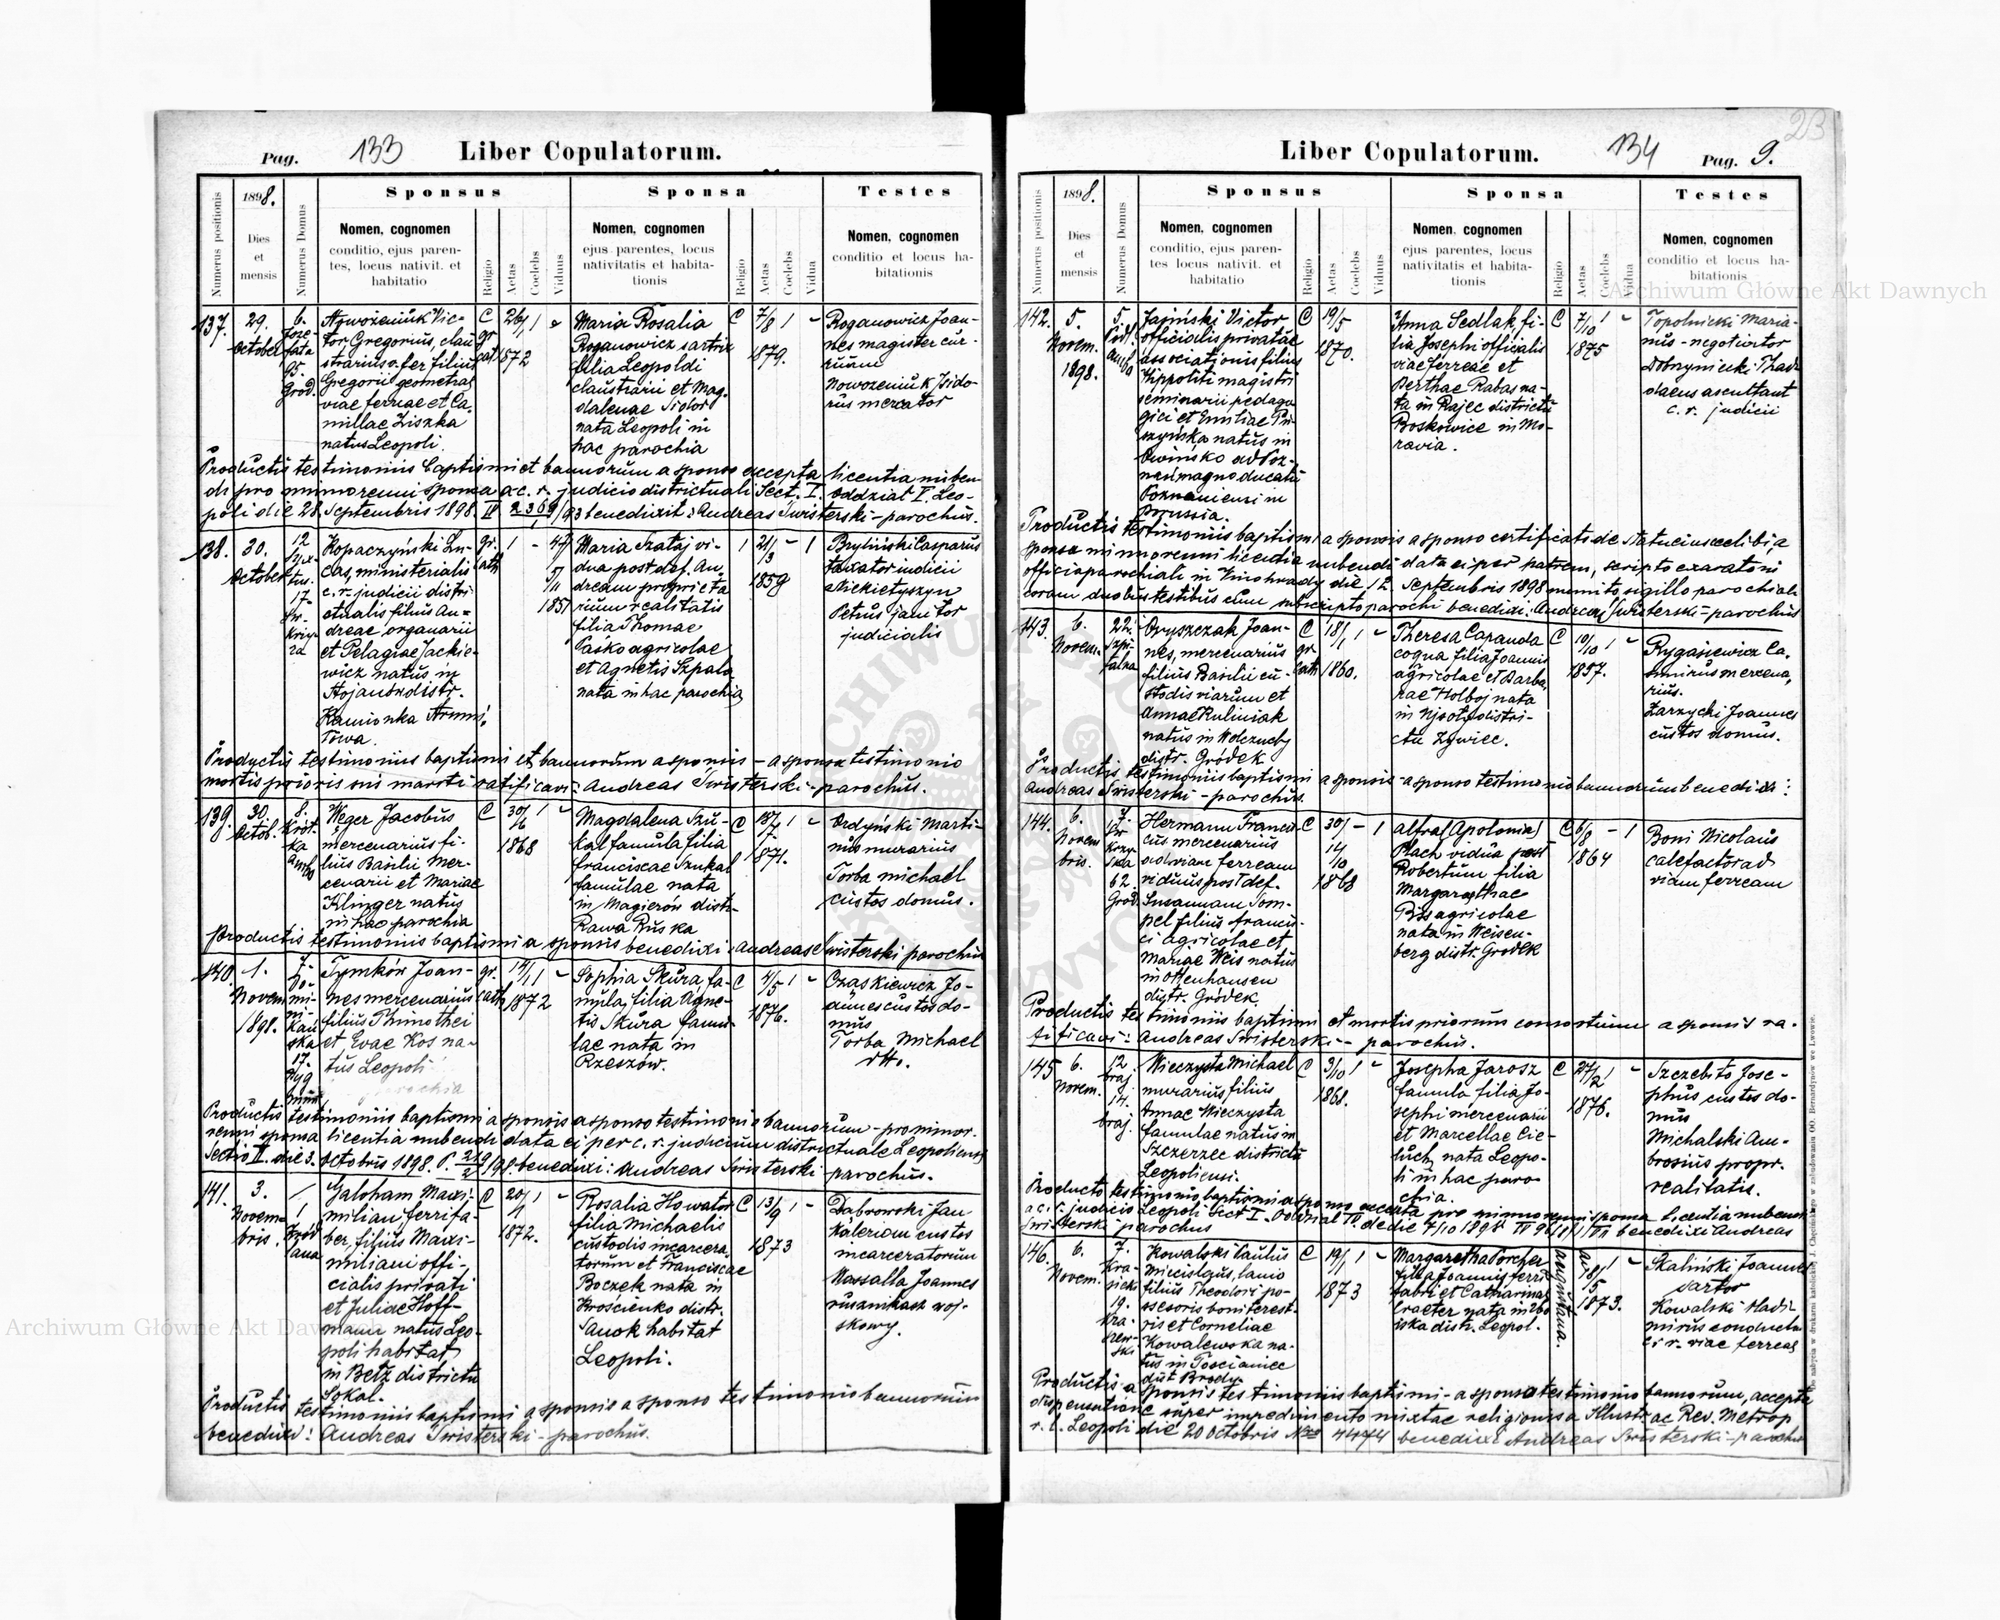 Pag. 133 Liber Copulatorum.
Numerus positionis
1898.
Dies
et
mensis
Numerus Domus
Sponsus
Nomen, cognomen
conditio, ejus paren-
tes, locus nativit. et
habitatio
Religio
Aetas
Coelebs
Viduus
Sponsa
Nomen, cognomen
ejus parentes, locus
nativitatis et habita-
tionis
Religio
Aetas
Coelebs
Vidua
Testes
Nomen, cognomen
conditio et locus ha-
bitationis
137.
29.
October
6.
Joze-
fata
95.
Grod.
Nowozeniuk Vic-
tor Gregorius, clau
strarius v. fer filius
Gregorii geometrae
viae ferreae et Ca-
millae Ziszka
natus Leopoli.
C
gr
cat
26/ 1
1872
Maria Rosalia
Roganowicz sartrix
filia Leopoldi
claustrarii et Mag-
dalenae Sidor
nata Leopoli in
hac parochia
C
7/8 1
1879.
Roganowicz Joan-
nes magister cur-
ruum
Nowozeniuk Isido-
rus mercator
Productis testimoniis baptismi et bannorum a sponso accepta licentia nuben
di pro minorenni sponsa a c. r. judicio districtuali Sect. I. Oddział V. Leo-
poli die 28. Septembris 1898 benedixit: Andreas Swisterski - parochus.
138.
30.
October
12
17.
Kopaczyński Lu-
cas, ministerialis
c. r. judicii distri-
ctualis filius An-
dreae organarii
et Pelagiae Jackie-
wicz natus in
distr.
Kamionka Strumi-
łowa.
gr.
cath
1
- 47
1851
Maria Szataj vi-
dua post def. An
dream proprieta
rium realitatis
filia Thomae
Caśko agricolae
et Agnetis Szpala
nata in hac parochia
1
21/3 - 1
1859
Bryliński Casparus
taxator judicii
Petrus janitor
judicialis
Productis testimoniis baptismi et bannorum a sponsis - a sponsa testimonio
mortis prioris sui mariti ratificavi: Andreas Swisterski - parochus.
139.
30.
Octob.
8.
Krót-
ka
Weger Jacobus
mercenarius fi-
lius Basilii mer-
cenarii et Mariae
Klinger natus
in hac parochia
C
30/ 1
1868
Magdalena Szu-
kal famula filia
Franciscae Szukal
famulae nata
in Magierów distr.
Rawa Ruska
C
18/7. 1
1871.
Ordyński Marti-
nus murarius
Torba Michael
custos domus.
Productis testimoniis baptismi a sponsis benedixi: Andreas Swisterski parochus
140.
1.
Novem
1898.
7.
Do-
mi-
ni-
kań
ska
17.
Zyg
munt
Tymków Joan-
nes mercenarius
filius Thimothei
et Evae Kos na-
tus Leopoli
gr.
cath
14/ 1
1872
Sophia Skura fa-
mula, filia Agne-
tis Skura famu-
lae nata in
Rzeszów.
C
4/5 1
1876.
Czaskiewicz Jo-
annes custos do-
mus
Torba Michael
dtto.
Productis testimoniis baptismi a sponsis a sponso testimonio bannorum - pro minor.
renni sponsa licentia nubendi data ei per c. r. judicium districtuale Leopoliense
Sectio II. die 3. Octobris 1898. benedixi: Andreas Swisterski - parochus.
141.
3.
Novem-
bris.
1
Gród
Galoham Maxi-
milian, ferrifa-
ber, filius Maxi-
miliani offi-
cialis privati
et Juliae Hoff-
mann natus Leo-
poli habitat
in Bełz districtu
Sokal.
C
20/ 1
1872.
Rosalia Howator
filia Michaelis
custodis incarcera-
torum et Franciscae
Boczek nata in
Krościenko distr.
Sanok habitat
Leopoli.
C
13/9 1
1873
Dabrowski Jan
Kalerian custos
incarceratorum
Marsalla Joannes
rusznikarz woj-
skowy.
Productis testimoniis baptismi a sponsis a sponso testimonio bannorum
benedixi: Andreas Swisterski - parochus.
23
Liber Copulatorum. 134 Pag. 9.
Numerus positionis
1898.
Dies
et
mensis
Numerus Domus
Sponsus
Nomen, cognomen
conditio, ejus paren-
tes locus nativit. et
habitatio
Religio
Aetas
Coelebs
Viduus
Sponsa
Nomen. cognomen
ejus parentes, locus
nativitatis et habita-
tionis
Religio
Aetas
Coelebs
Vidua
Testes
Nomen, cognomen
conditio et locus ha-
bitationis
142.
5.
Novem.
1898.
5.
Jasiński Victor
officialis privatae
associationis filius
Hippoliti magistri
seminarii pedago
gici et Emiliae
natus in
Owinsko ad Poz-
nan magno ducatu
Poznaniensi in
Borussia.
C
19/5
1870.
Anna Sedlak fi-
lia Josephi officialis
viae ferreae et
Berthae Rabas na-
ta in Rajec districtu
Boskowice in Mo-
ravia.
C
7/10 1
1875
Topolnicki Maria-
nus - negotiator
Dobrzyniecki Thad
daeus ascultant
c. r. judicii
Productis testimoniis baptismi a sponsis a sponso certificati de statu suo coelibi, a
sponsa minorenni licentia nubendi data ei per patrem, scripto exarato in
officio parochiali in Vinohrady die 12. Septembris 1898 munito sigillo parochiali
coram duobus testibus cum subscripto parochi benedixi: Andreas Swisterski - parochus
143.
6.
Novem.
22.
Szpi-
talna
Oryszczak Joan-
nes, mercenarius
filius Basilii cu-
stodis viarum et
Annae Kuliniak
natus in Wołczuchy
distr. Gródek
C
gr.
cath
18/1 1
1860.
Theresa Capanda
coqua filia Joannis
agricolae et Barba-
rae Holboj nata
in distri-
ctu Zywiec.
C
10/10 1
1857.
Rygasiewicz Ca-
simirus mercena-
rius.
Zarzycki Joannes
custos domus.
Productis testimoniis baptismi a sponsis - a sponso testimonio bannorum benedixi:
Andreas Swisterski - parochus.
144.
6.
Novem
bris.
7.
62.
Gród.
Hermann Francis
cus mercenarius
ad viam ferream
viduus post def.
Susannam Tom-
pel filius Francis-
ci agricolae et
Mariae Weis natus
in Ottenhausen
distr. Gródek.
C
30/ - 1
14/10
1868
Alfraf (Apolonia)
Plach vidua post
Robertum filia
Margarethae
Bis agricolae
nata in Weisen-
berg distr. Grodek
C
6/8 - 1
1864
Boni Nicolaus
calefactor ad
viam ferream
Productis testimoniis baptismi et mortis priorum consortium a sponsis ra-
tificavi: Andreas Swisterski - parochus.
145
6.
Novem.
12.
braj.
14.
braj.
Mieczysta Michael
murarius, filius
Annae Mieczysta
famulae natus in
Szczerzec districtu
Leopoliensi.
C
3/10 1
1868.
Josepha Jarosz
famula filia Jo-
sephi mercenarii
et Marcellae Cie-
luch, nata Leopo-
li in hac paro-
chia.
C
27/2 1
1876.
Szczebito Jose-
phus custos do-
mus
Michalski Am-
brosius propr.
realitatis.
Producto testimonio baptismi a sponso accepta pro minorenni sponsa licentia nubendi
a c. r. judicio Leopoli Sect I. Oddział IV. de die 7/10 1898 benedixi Andreas
Swisterski - parochus
146.
6.
Novem.
7.
Kra-
sicki
19.
Kowalski Paulus
Miecislaus, lanio
filius Theodori po-
ssesoris boni terest-
ris et Corneliae
Kowalewska na-
tus in Toscianiec
dist Brody.
C
19/1 1
1873
Margaretha Porcher
filia Joannis ferri
fabri et Catharinae
Kraeter nata in Zbo
iska distr. Leopol.
augustana.
18/5 1
1873.
Kaliński Joannes
sartor
Kowalski Vladi-
mirus conductor
c. r. viae ferreae
Productis a sponsis testimoniis baptismi - a sponso testimonio bannorum, accepta
dispensatione super impedimento mixtae religionis a Illustr. ac Rev. Metrop
r. l. Leopoli die 20 Octobris No 4474 benedixi Andreas Swisterski - parochus
Do nabycia w drukarni katolickiej J. Chęcińskiego w zabudowaniu OO. Bernardynów we Lwowie.
Archiwum Główne Akt Dawnych
Archiwum Główne Akt Dawnych